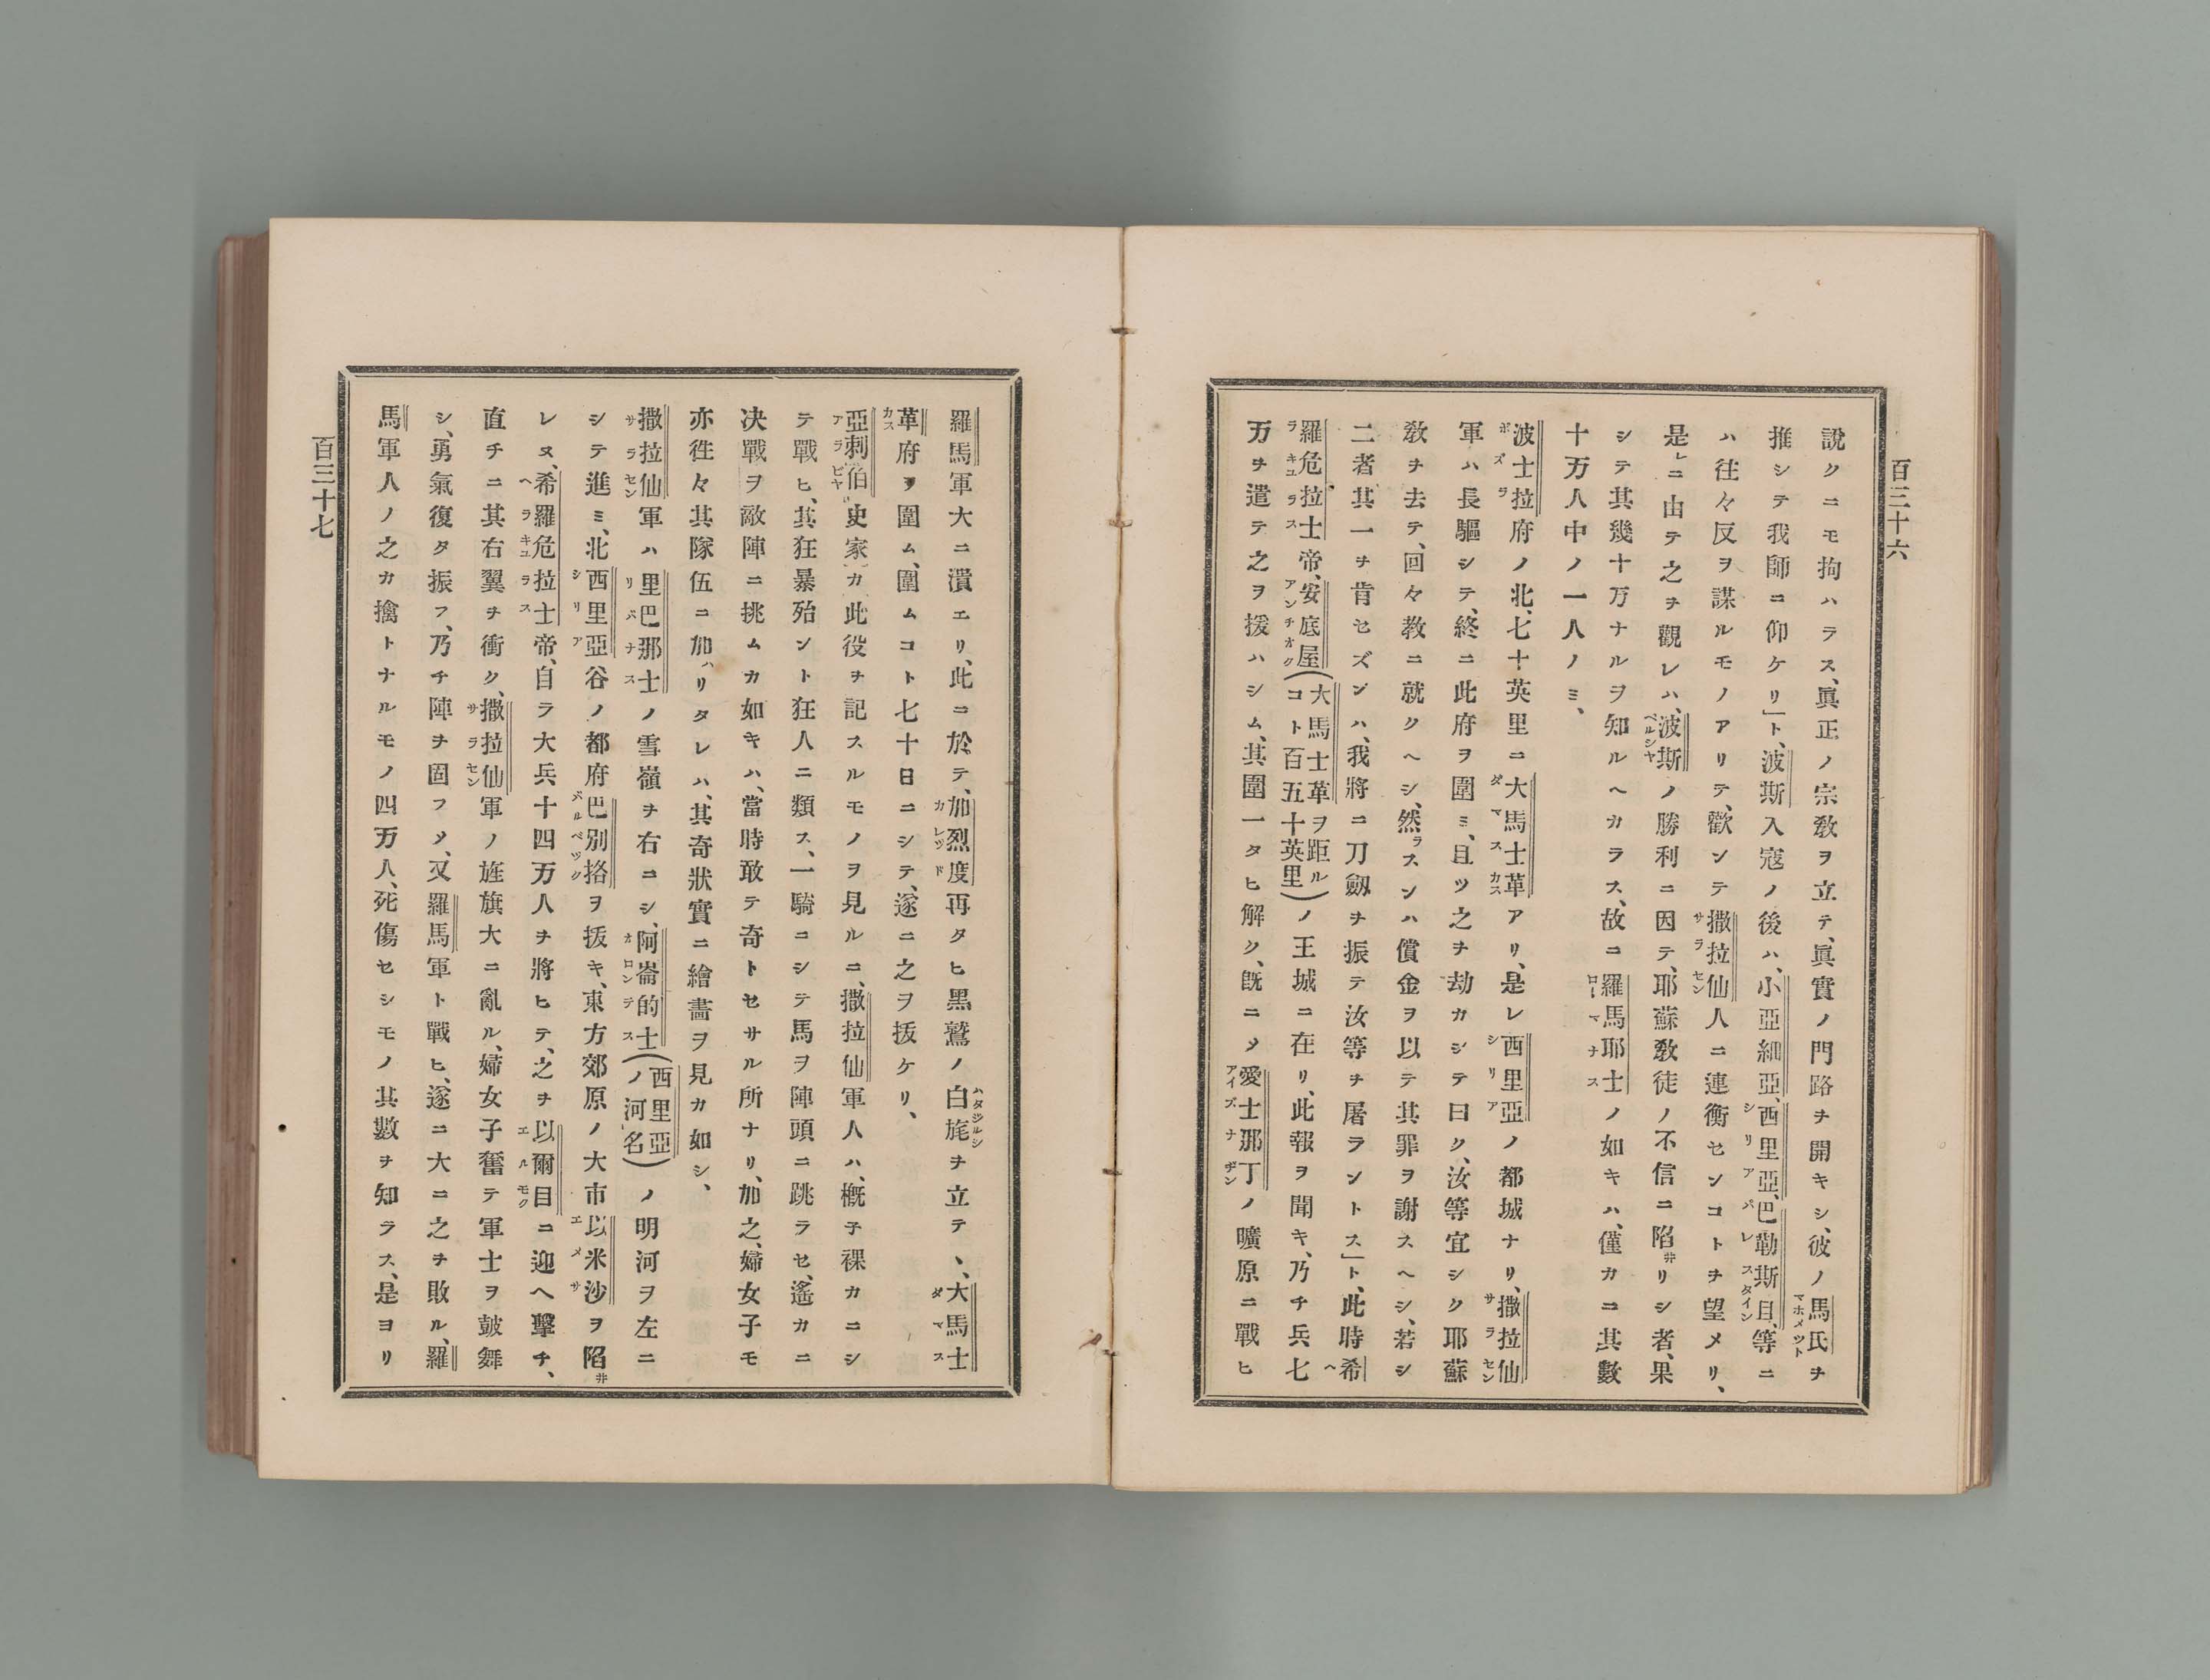 百三十六
説クニモ拘ハラス、眞正ノ宗教ヲ立テ、眞實ノ門路ヲ開キシ、彼ノ馬氏ヲ
推シテ我師ニ仰ケリ」ト、波斯入寇ノ後ハ、小亞細亞、西里亞、巴勒斯且、等ニ
ハ往々反ヲ謀ルモノアリテ、歡ンテ撒拉仙人ニ連衡センコトヲ望メリ、
是レニ由テ之ヲ觀レハ、波斯ノ勝利ニ因テ、耶蘇教徒ノ不信ニ陷井リシ者、果
シテ其幾十万ナルヲ知ルヘカラス、故ニ羅馬耶士ノ如キハ、僅カニ其數
十万人中ノ一人ノミ、
波士拉府ノ北、七十英里ニ大馬士革アリ、是レ西里亞ノ都城ナリ、撒拉仙
軍ハ長驅シテ、終ニ此府ヲ圍ミ、且ツ之ヲ劫カシテ曰ク、汝等宜シク耶蘇
敎ヲ去テ、回々教ニ就クヘシ、然ラスンハ償金ヲ以テ其罪ヲ謝スヘシ、若シ
二者其一ヲ肯セズンハ、我將ニ刀劔ヲ振テ汝等ヲ屠ラントス」ト、此時希
羅危拉士帝、安底屋(大馬士革ヲ距ルコト百五十英里)ノ王城ニ在リ、此報ヲ聞キ、乃チ兵七
万ヲ遣テ之ヲ援ハシム、其圍一タヒ解ク、旣ニメ愛士那丁ノ曠原ニ戰ヒ
羅馬軍大ニ潰エリ、此ニ於テ、加烈度再タヒ黑鷲ノ白旄ヲ立テヽ、大馬士
革府ヲ圍ム、圍ムコト七十日ニシテ、遂ニ之ヲ拔ケリ、
亞刺伯史家カ此役ヲ記スルモノヲ見ルニ、撒拉仙軍人ハ、概子裸カニシ
テ戰ヒ、其狂暴殆ント狂人ニ類ス、一騎ニシテ馬ヲ陣頭ニ跳ラセ、遙カニ
决戰ヲ敵陣ニ挑ムカ如キハ、當時敢テ奇トセサル所ナリ、加之、婦女子モ
亦徃々其隊伍ニ加ハリタレハ、其奇狀實ニ繪畵ヲ見カ如シ、
撒拉仙軍ハ里巴那士ノ雪嶺ヲ右ニシ、阿崙的士(西里亞ノ河名)ノ明河ヲ左ニ
シテ進ミ、北西里亞谷ノ都府巴別挌ヲ拔キ、東方郊原ノ大市以米沙ヲ陷井
レヌ、希羅危拉士帝、自ラ大兵十四万人ヲ將ヒテ、之ヲ以爾目ニ迎ヘ擊チ、
直チニ其右翼ヲ衝ク、撒拉仙軍ノ旌旗大ニ亂ル、婦女子奮テ軍士ヲ皷舞
シ、勇氣復タ振フ、乃チ陣ヲ固フメ、又羅馬軍ト戰ヒ、遂ニ大ニ之ヲ敗ル、羅
馬軍人ノ之カ擒トナルモノ四万人、死傷セシモノ其數ヲ知ラス、是ヨリ
百三十七